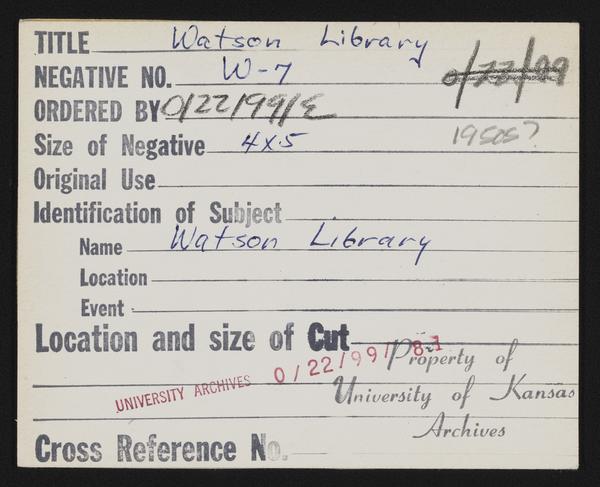 TITLE Watson Library
NEGATIVE NO. W-7 0/22/99
ORDERED BY 0/22/99/E
Size of Negative 4x5 1950s?
Original Use
Identification of Subject
Name Watson Library
Location
Event
Location and size of Cut
UNIVERSITY ARCHIVES 0/22/99/ 8-1
Property of
University of Kansas
Archives
Cross Reference No.